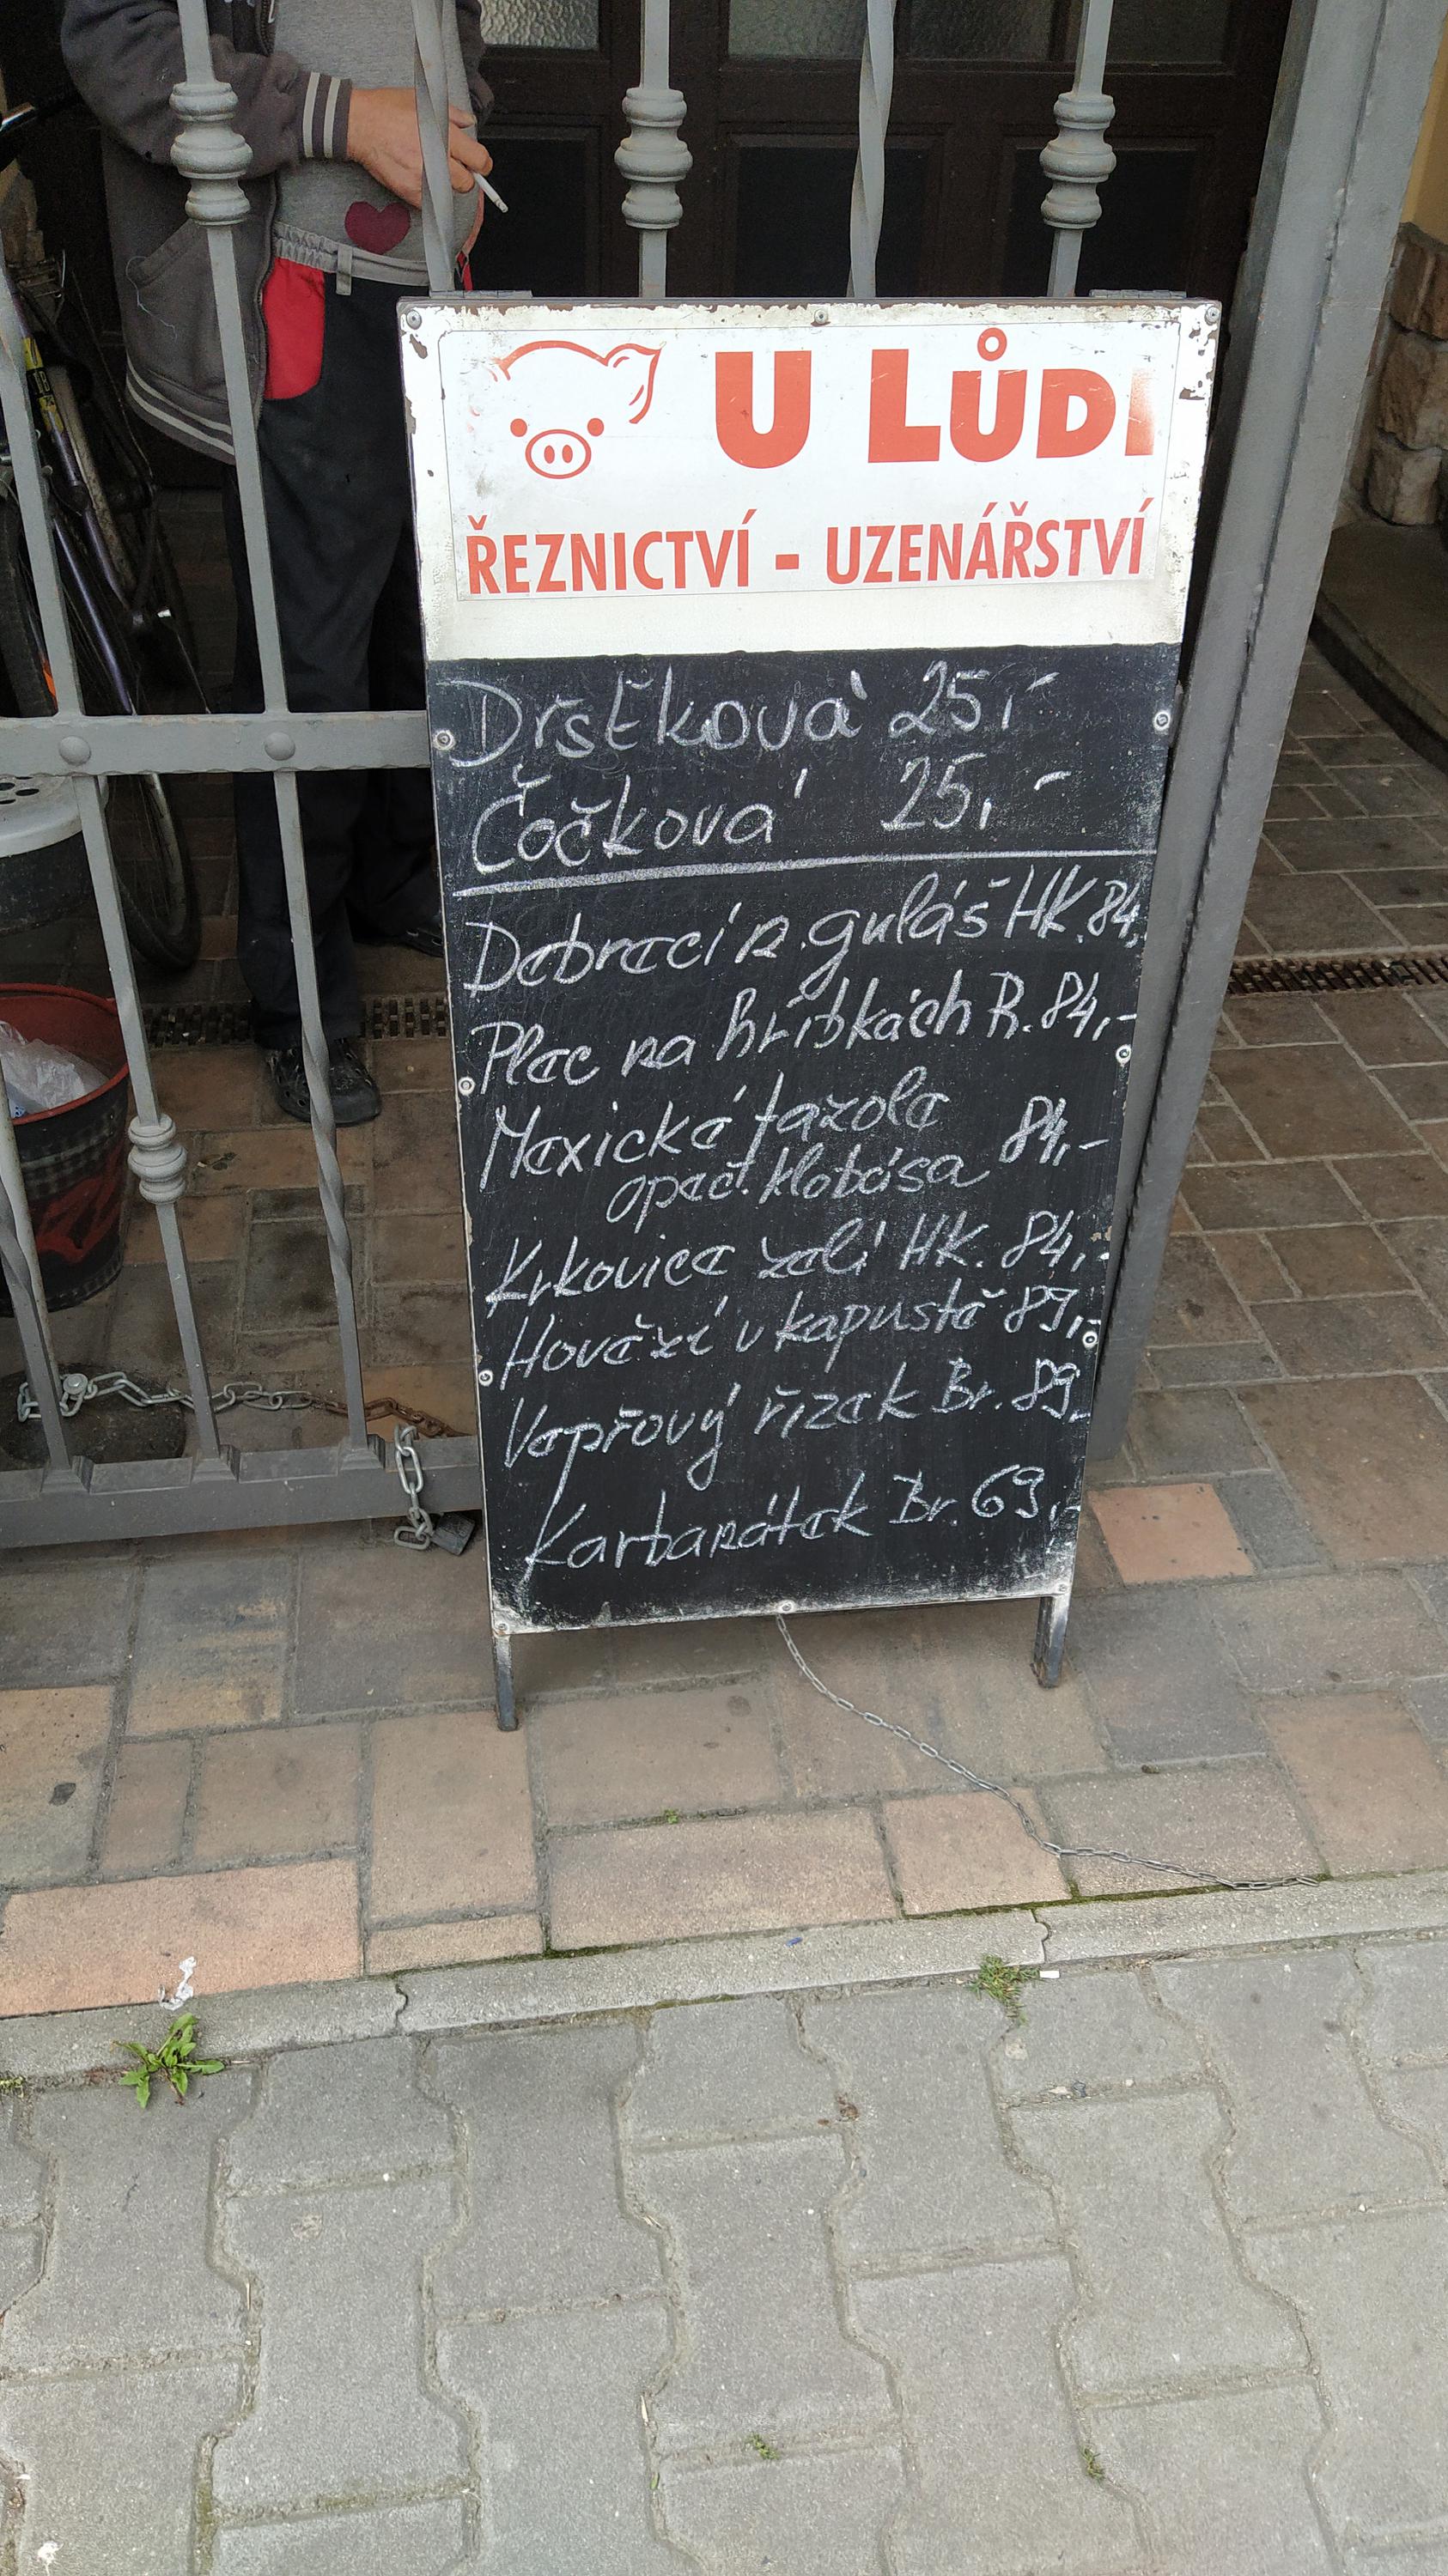 U LŮDI
ŘEZNICTVÍ - UZENÁŘSTVÍ
Drštková 25,-
Čočková 25,-
Debrecín. guláš HK. 84,
Plec na hříbkách R. 84,-
Mexické fazole 84,-
opeč. klobása
Krkovice zelí HK. 84,-
Hovězí v kapustě 89,-
Vepřový řízek Br. 89,
Karbanátek Br. 69,-